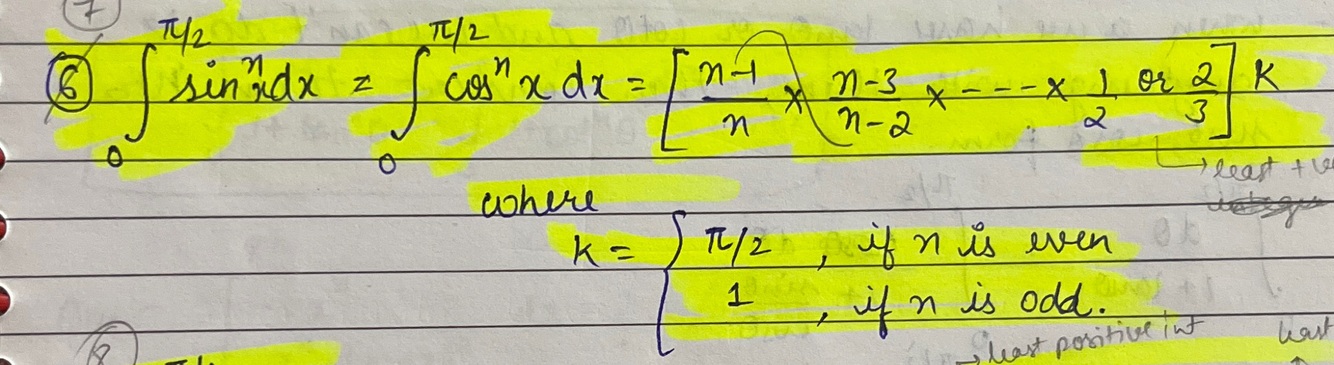 7
6 ∫₀^{π/2} sinⁿx dx = ∫₀^{π/2} cosⁿ x dx = [ (n-1)/n × (n-3)/(n-2) × ---- × 1/2 or 2/3 ] K
→ least +ve
where
K = { π/2 , if n is even
1 , if n is odd.
→ least positive int least
8 π/